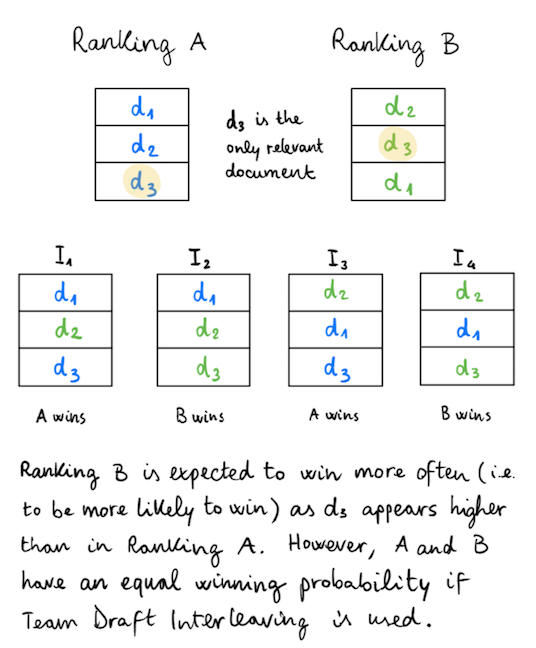 Ranking A
Ranking B
d1
d2
d3
d3 is the
only relevant
document
d2
d3
d1
I1
I2
I3
I4
d1
d2
d3
d1
d2
d3
d2
d1
d3
d2
d1
d3
A wins
B wins
A wins
B wins
Ranking B is expected to win more often (i.e.
to be more likely to win) as d3 appears higher
than in Ranking A. However, A and B
have an equal winning probability if
Team Draft Interleaving is used.